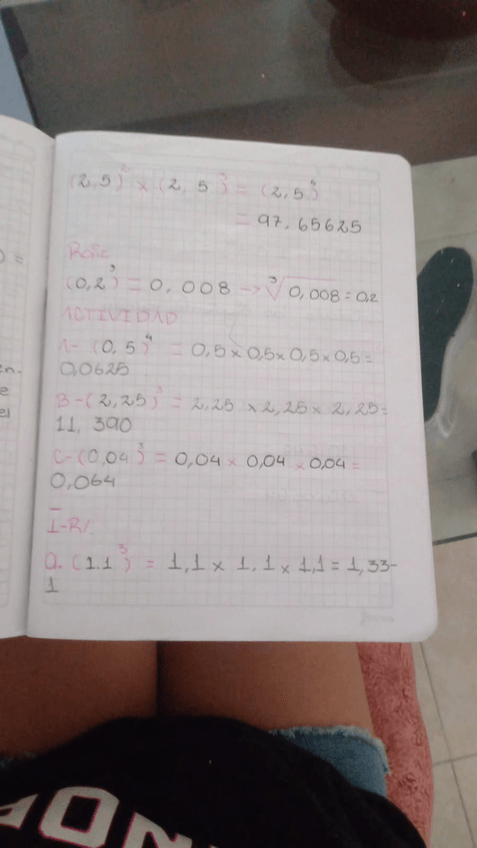 (2,5)² x (2,5)³ = (2,5)⁵
= 97,65625
Raíz
(0,2)³ = 0,008 → ³√0,008 = 0,2
ACTIVIDAD
A- (0,5)⁴ = 0,5 x 0,5 x 0,5 x 0,5 =
0,0625
B- (2,25)³ = 2,25 x 2,25 x 2,25 =
11,390
C- (0,04)³ = 0,04 x 0,04 x 0,04 =
0,064
I-R/.
a. (1.1)³ = 1,1 x 1,1 x 1,1 = 1,33-
1